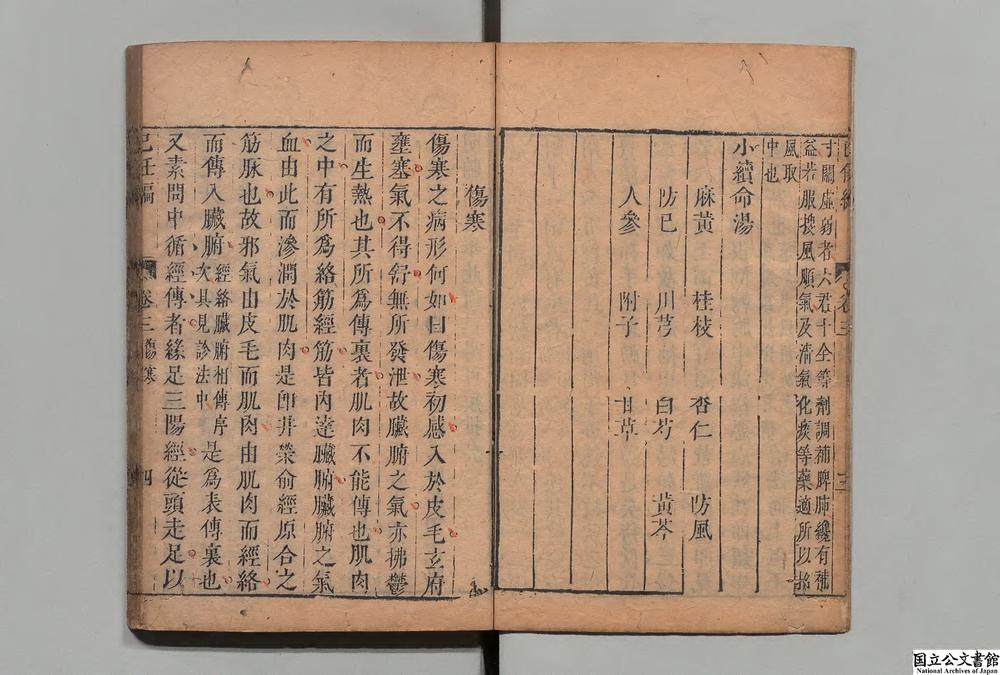 寸關虛弱者六君十全等劑調補脾肺纔有補
益若服搜風順氣及清氣化痰等藥適所以招
風取
中也
小續命湯
麻黃 桂枝 杏仁 防風
防已 川芎 白芍 黃芩
人參 附子 甘草
傷寒
傷寒之病形何如曰傷寒初感入於皮毛玄府
壅塞氣不得舒無所發泄故臟腑之氣亦拂鬱
而生熱也其所爲傳裏者肌肉不能傳也肌肉
之中有所爲絡筋經筋皆內達臟腑臟腑之氣
血由此而滲濶於肌肉是卽井滎俞經原合之
筋脉也故邪氣由皮毛而肌肉由肌肉而經絡
而傳入臟腑經絡臟腑相傳序次具見診法中是爲表傳裏也
又素問中循經傳者緣足三陽經從頭走足以
已任編 卷三傷寒 四